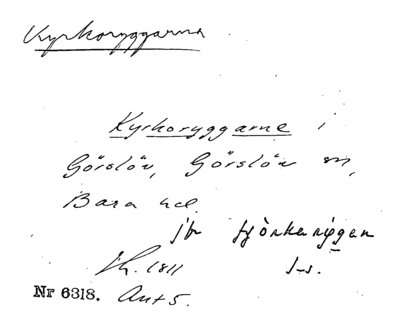 Kyrkoryggarna
Kyrkoryggarne i
Görslöv, Görslöv sn,
Bara hd
jfr Björkaryggen
Sk. 1811
Nr 6318. Ant 5.